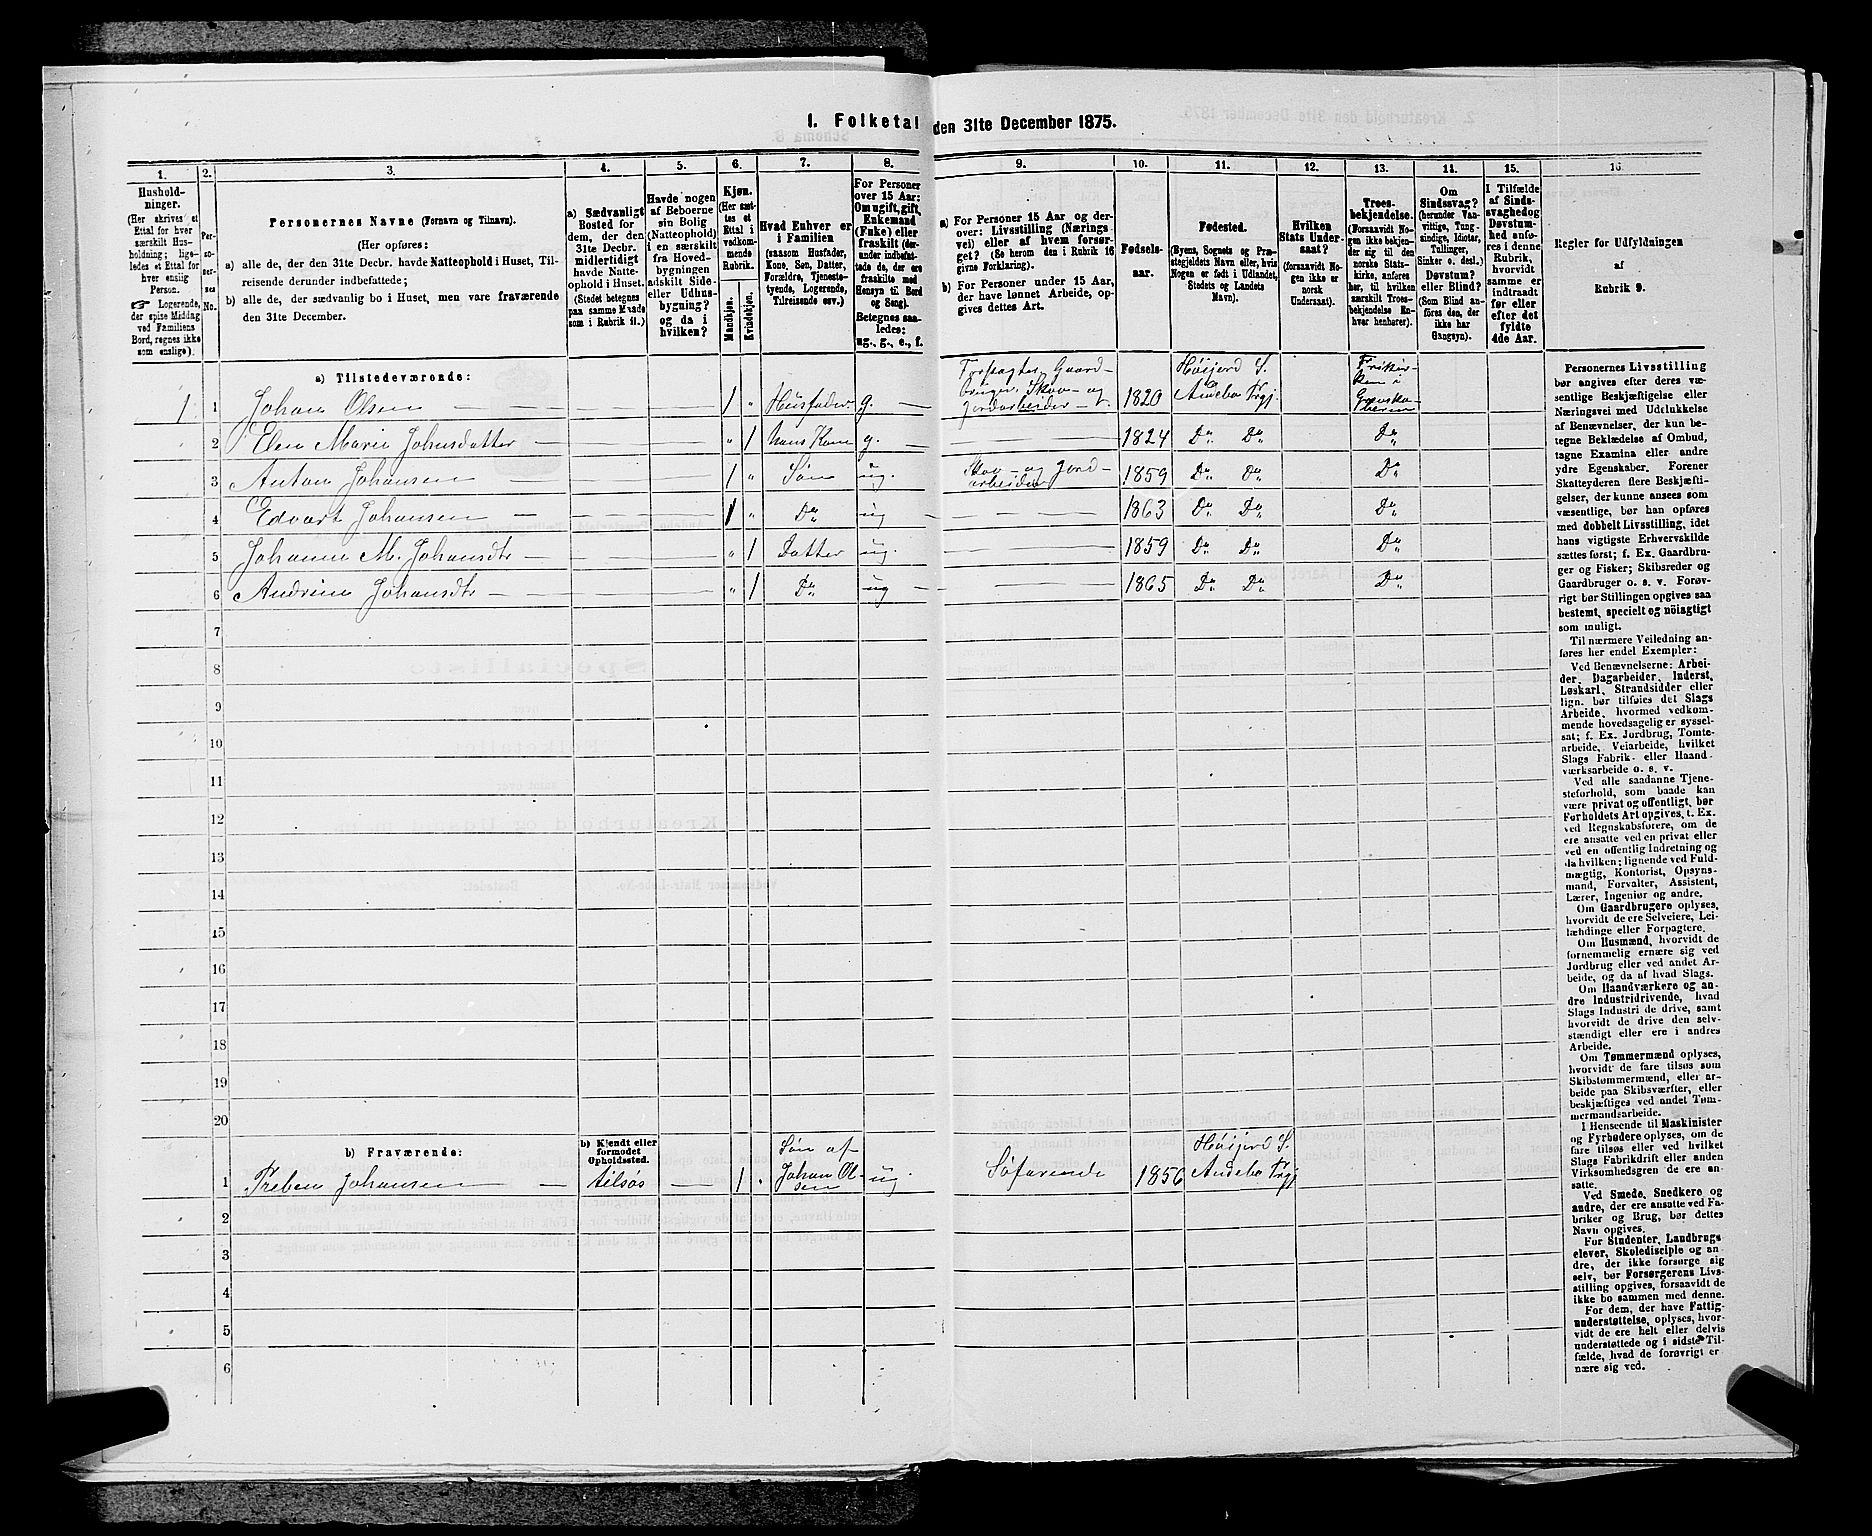 I. Folketal den 31te December 1875.
1. 2. 3. 4. 5. 6. 7. 8. 9. 10. 11. 12. 13. 14. 15. 16.
Hushold-
ninger.
(Her skrives et
Ettal for hver
særskilt Hus-
holdning; lige-
ledes et Ettal for
hver enslig
Person.
☞ Logerende,
der spise Middag
ved Familiens
Bord, regnes ikke
som enslige).
Per-
so-
ner-
nes
No.
Personernes Navne (Fornavn og Tilnavn).
(Her opføres:
a) alle de, der den 31te Decbr. havde Natteophold i Huset, Til-
reisende derunder indbefattede;
b) alle de, der sædvanlig bo i Huset, men vare fraværende
den 31te December.
a) Sædvanligt
Bosted for
dem, der den
31te Decbr.
midlertidigt
havde Natte-
ophold i Huset.
(Stedet betegnes
paa samme Maade
som i Rubrik 11.)
Havde nogen
af Beboerne
sin Bolig
(Natteophold)
i en særskilt
fra Hoved-
bygningen
adskilt Side-
eller Udhus-
bygning?
og da i
hvilken?
Kjøn.
(Her sæt-
tes et
Ettal i
vedkom-
mende
Rubrik.
Mandkjøn.
Kvindekjøn.
Hvad Enhver er
i Familien
(saasom Husfader,
Kone, Søn, Datter,
Forældre, Tjeneste-
tyende, Logerende,
Tilreisende osv.)
For Personer
over 15 Aar:
Om ugift, gift,
Enkemand
(Enke) eller
fraskilt (der-
under indbefat-
tede de, der ere
fraskilte med
Hensyn til Bord
og Seng).
Betegnes saa-
ledes:
ug., g., e., f.
a) For Personer 15 Aar og der-
over: Livsstilling (Nærings-
vei) eller af hvem forsør-
get? (Se herom den i Rubrik 16
givne Forklaring).
b) For Personer under 15 Aar,
der have lønnet Arbeide, op-
gives dettes Art.
Fødsels-
aar.
Fødested.
(Byens, Sognets og Præ-
stegjeldets Navn eller, hvis
Nogen er født i Udlandet,
Stedets og Landets
Navn).
Hvilken
Stats Under-
saat?
(forsaavidt No-
gen ikke er
norsk
Undersaat).
Troes-
bekjendelse.
(Forsaavidt No-
gen ikke bekjen-
der sig til den
norske Stats-
kirke, anføres
her, til hvilken
særskilt Troes-
bekjendelse En-
hver henhører).
Om
Sindssvag?
(herunder Van-
vittige, Tung-
sindige, Idioter,
Tullinger,
Sinker o. desl.)
Døvstum?
eller Blind?
(Som Blind an-
føres den, der
ikke har
Gangsyn).
I Tilfælde
af Sinds-
svaghed og
Døvstum-
hed anfø-
res i denne
Rubrik,
hvorvidt
samme er
indtraadt
før eller
efter det
fyldte
4de Aar.
Regler for Udfyldningen
af
Rubrik 9.
a) Tilstedeværende:
1 1 Johan Olsen 1 " Husfader g. Forpagter, Gaard-
bruger, Skov- og
Jordarbeider 1820 Høijord S.
Andebo Prgj Frikir-
ken i
2 Elen Marie Johnsdatter " 1 hans Kone g. 1824 Do Do Do
3 Anton Johansen 1 " Søn ug. Skov- og Jord-
arbeider 1859 Do Do Do
4 Edvart Johansen 1 " Do ug 1863 Do Do Do
5 Johanne M. Johansdtr " 1 Datter ug. 1859 Do Do Do
6 Andrine Johansdtr " 1 Do ug 1865 Do Do Do
7
8
9
10
11
12
13
14
15
16
17
18
19
20
b) Fraværende:
b) Kjendt eller
formodet
Opholdssted.
1 Preben Johansen tilsøs 1 Søn af
Johan Ol-
sen ug Søfarende 1856 Høijord S.
Andebo Prgj
2
3
4
5
6
Personernes Livsstilling
bør angives efter deres væ-
sentlige Beskjæftigelse eller
Næringsvei med Udelukkelse
af Benævnelser, der kun be-
tegne Beklædelse af Ombud,
tagne Examina eller andre
ydre Egenskaber. Forener
Skatteyderen flere Beskjæfti-
gelser, der kunne ansees som
væsentlige, bør han opføres
med dobbelt Livsstilling, idet
hans vigtigste Erhvervskilde
sættes først; f. Ex. Gaardbru-
ger og Fisker; Skibsreder og
Gaardbruger o. s. v. Forøv-
rigt bør Stillingen opgives saa
bestemt, specielt og nøiagtigt
som muligt.
Til nærmere Veiledning an-
føres her endel Exempler:
Ved Benævnelserne: Arbei-
der, Dagarbeider, Inderst,
Løskarl, Strandsidder eller
lign. bør tilføies det Slags
Arbeide, hvormed vedkom-
mende hovedsagelig er syssel-
sat; f. Ex. Jordbrug, Tomte-
arbeide, Veiarbeide, hvilket
Slags Fabrik- eller Haand-
værksarbeide o. s. v.
Ved alle saadanne Tjene-
steforhold, som baade kan
være privat og offentligt, bør
Forholdets Art opgives, t. Ex.
ved Regnskabsførere, om de
ere ansatte ved en privat eller
ved en offentlig Indretning og
da hvilken; lignende ved Fuld-
mægtig, Kontorist, Opsyns-
mand, Forvalter, Assistent,
Lærer, Ingeniør og andre.
Om Gaardbrugere oplyses,
hvorvidt de ere Selveiere, Lei-
lændinge eller Forpagtere.
Om Husmænd, hvorvidt de
fornemmelig ernære sig ved
Jordbrug eller ved andet Ar-
beide, og da af hvad Slags.
Om Haandværkere og an-
dre Industridrivende, hvad
Slags Industri de drive, samt
hvorvidt de drive den selv-
stændigt eller ere i andres
Arbeide.
Om Tømmermænd oplyses,
hvorvidt de fare tilsøs som
Skibstømmermænd, eller ar-
beide paa Skibsværfter, eller
beskjæftiges ved andet Tøm-
mermandsarbeide.
I Henseende til Maskinister
og Fyrbødere oplyses, om de
fare tilsøs eller ved hvilket
Slags Fabrikdrift eller anden
Virksomhedsgren de ere an-
satte.
Ved Smede, Snedkere og
andre, der ere ansatte ved Fa-
briker og Brug, bør dettes
Navn opgives.
For Studenter, Landbrugs-
elever, Skoledisciple og an-
dre, der ikke forsørge sig
selv, bør Forsørgerens Livs-
stilling opgives, forsaavidt de
ikke bo sammen med denne.
For dem, der have Fattig-
understøttelse, oplyses, hvor-
vidt de ere helt eller delvis
understøttede og i sidste Til-
fælde, hvad de forøvrigt er-
nære sig ved.